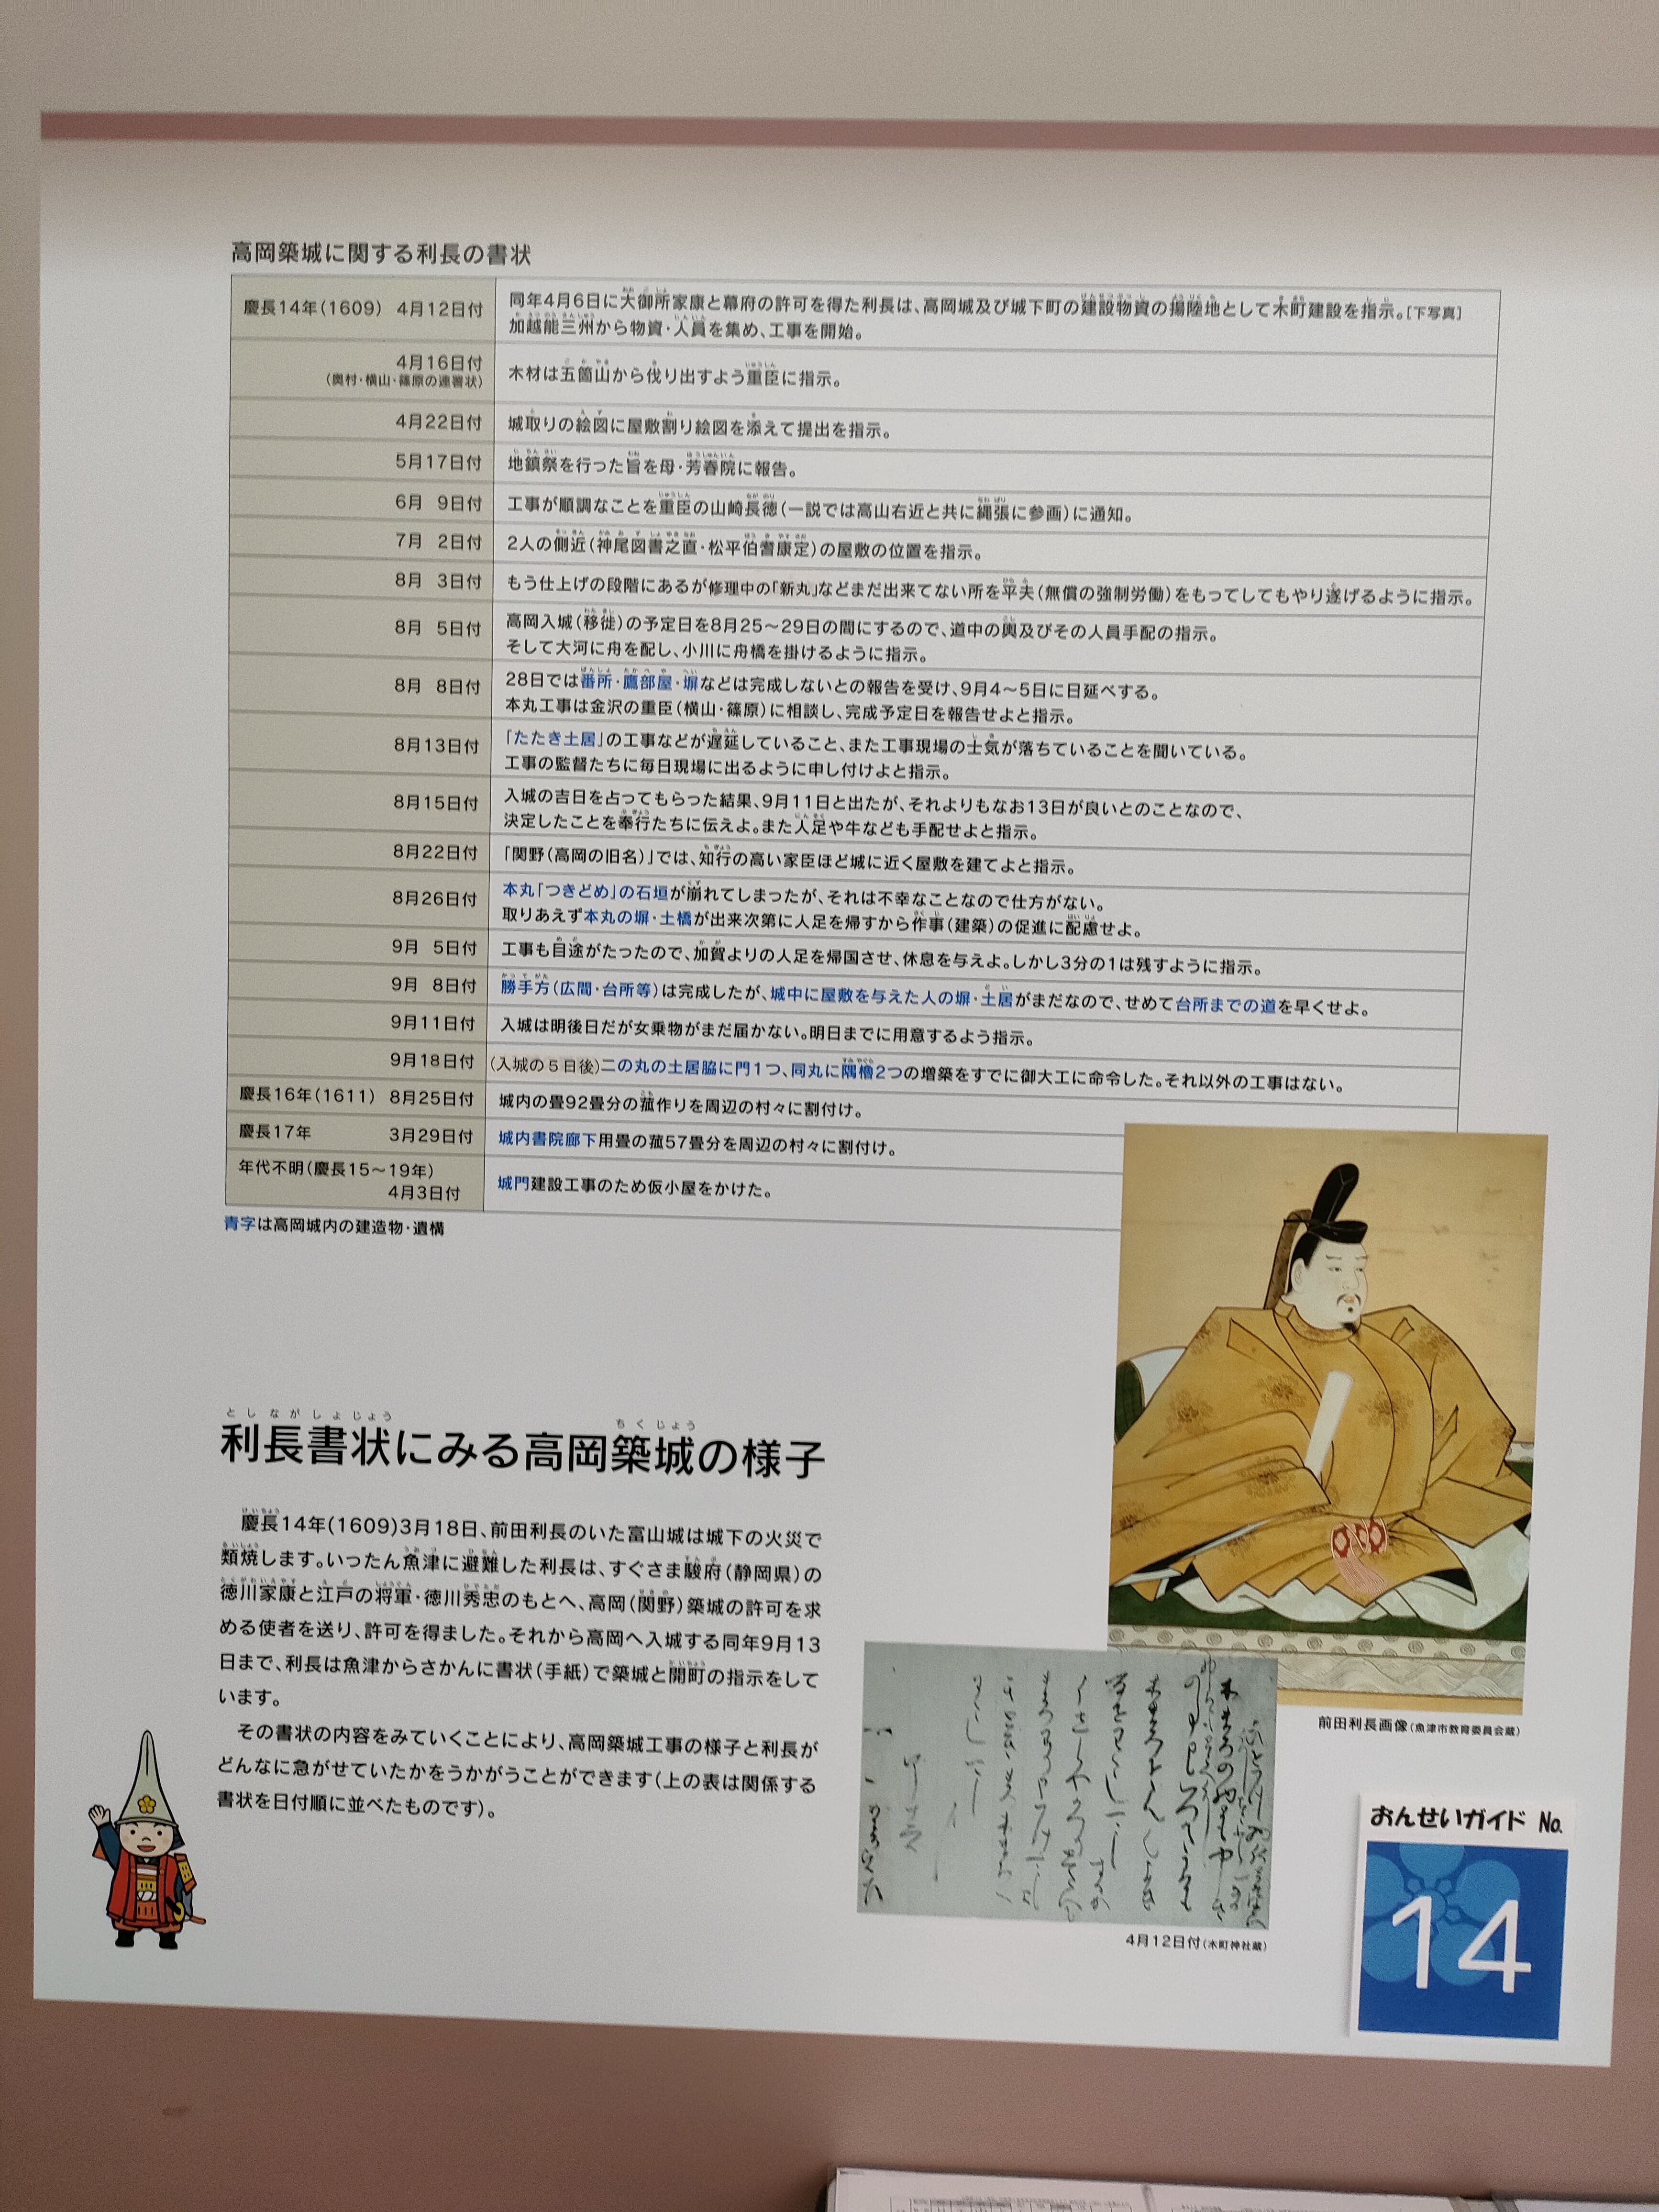 高岡築城に関する利長の書状
慶長14年(1609) 4月12日付
同年4月6日に大御所家康と幕府の許可を得た利長は、高岡城及び城下町の建設物資の揚陸地として木町建設を指示。[下写真]
加越能三州から物資・人員を集め、工事を開始。
4月16日付
(奥村・横山・篠原の連署状)
木材は五箇山から伐り出すよう重臣に指示。
4月22日付
城取りの絵図に屋敷割り絵図を添えて提出を指示。
5月17日付
地鎮祭を行った旨を母・芳春院に報告。
6月 9日付
工事が順調なことを重臣の山崎長徳(一説では高山右近と共に縄張に参画)に通知。
7月 2日付
2人の側近(神尾図書之直・松平伯耆康定)の屋敷の位置を指示。
8月 3日付
もう仕上げの段階にあるが修理中の「新丸」などまだ出来てない所を平夫(無償の強制労働)をもってしてもやり遂げるように指示。
8月 5日付
高岡入城(移徙)の予定日を8月25～29日の間にするので、道中の輿及びその人員手配の指示。
そして大河に舟を配し、小川に舟橋を掛けるように指示。
8月 8日付
28日では番所・鷹部屋・塀などは完成しないとの報告を受け、9月4～5日に日延べする。
本丸工事は金沢の重臣(横山・篠原)に相談し、完成予定日を報告せよと指示。
8月13日付
「たたき土居」の工事などが遅延していること、また工事現場の士気が落ちていることを聞いている。
工事の監督たちに毎日現場に出るように申し付けよと指示。
8月15日付
入城の吉日を占ってもらった結果、9月11日と出たが、それよりもなお13日が良いとのことなので、
決定したことを奉行たちに伝えよ。また人足や牛なども手配せよと指示。
8月22日付
「関野(高岡の旧名)」では、知行の高い家臣ほど城に近く屋敷を建てよと指示。
8月26日付
本丸「つきどめ」の石垣が崩れてしまったが、それは不幸なことなので仕方がない。
取りあえず本丸の塀・土橋が出来次第に人足を帰すから作事(建築)の促進に配慮せよ。
9月 5日付
工事も目途がたったので、加賀よりの人足を帰国させ、休息を与えよ。しかし3分の1は残すように指示。
9月 8日付
勝手方(広間・台所等)は完成したが、城中に屋敷を与えた人の塀・土居がまだなので、せめて台所までの道を早くせよ。
9月11日付
入城は明後日だが女乗物がまだ届かない。明日までに用意するよう指示。
9月18日付
(入城の5日後)二の丸の土居脇に門1つ、同丸に隅櫓2つの増築をすでに御大工に命令した。それ以外の工事はない。
慶長16年(1611) 8月25日付
城内の畳92畳分の菰作りを周辺の村々に割付け。
慶長17年 3月29日付
城内書院廊下用畳の菰57畳分を周辺の村々に割付け。
年代不明(慶長15～19年)
4月3日付
城門建設工事のため仮小屋をかけた。
青字は高岡城内の建造物・遺構
利長書状にみる高岡築城の様子
慶長14年(1609)3月18日、前田利長のいた富山城は城下の火災で
類焼します。いったん魚津に避難した利長は、すぐさま駿府(静岡県)の
徳川家康と江戸の将軍・徳川秀忠のもとへ、高岡(関野)築城の許可を求
める使者を送り、許可を得ました。それから高岡へ入城する同年9月13
日まで、利長は魚津からさかんに書状(手紙)で築城と開町の指示をして
います。
その書状の内容をみていくことにより、高岡築城工事の様子と利長が
どんなに急がせていたかをうかがうことができます(上の表は関係する
書状を日付順に並べたものです)。
前田利長画像(魚津市教育委員会蔵)
4月12日付(木町神社蔵)
おんせいガイド No.
14